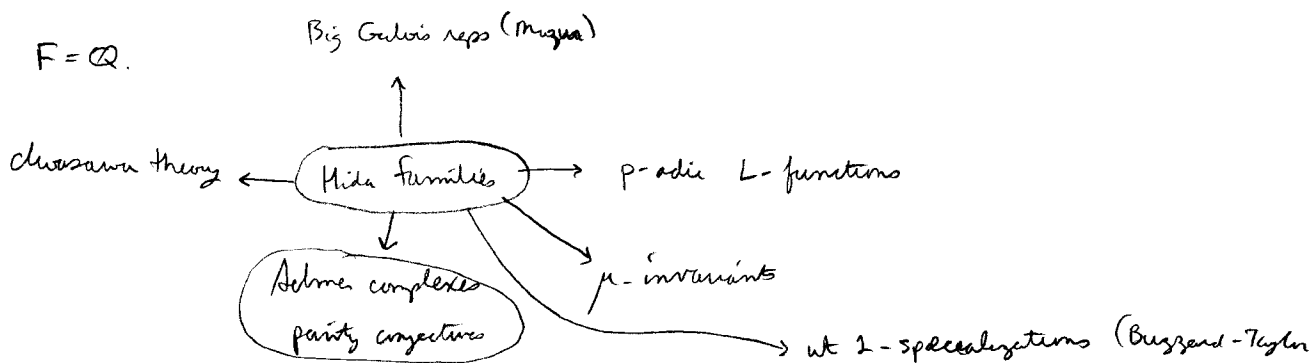 Big Galois reps (Mazur)
F = ℚ.
Iwasawa theory
Hida families
p-adic L-functions
Selmer complexes
parity conjectures
μ-invariants
wt 1-specializations (Buzzard-Taylor